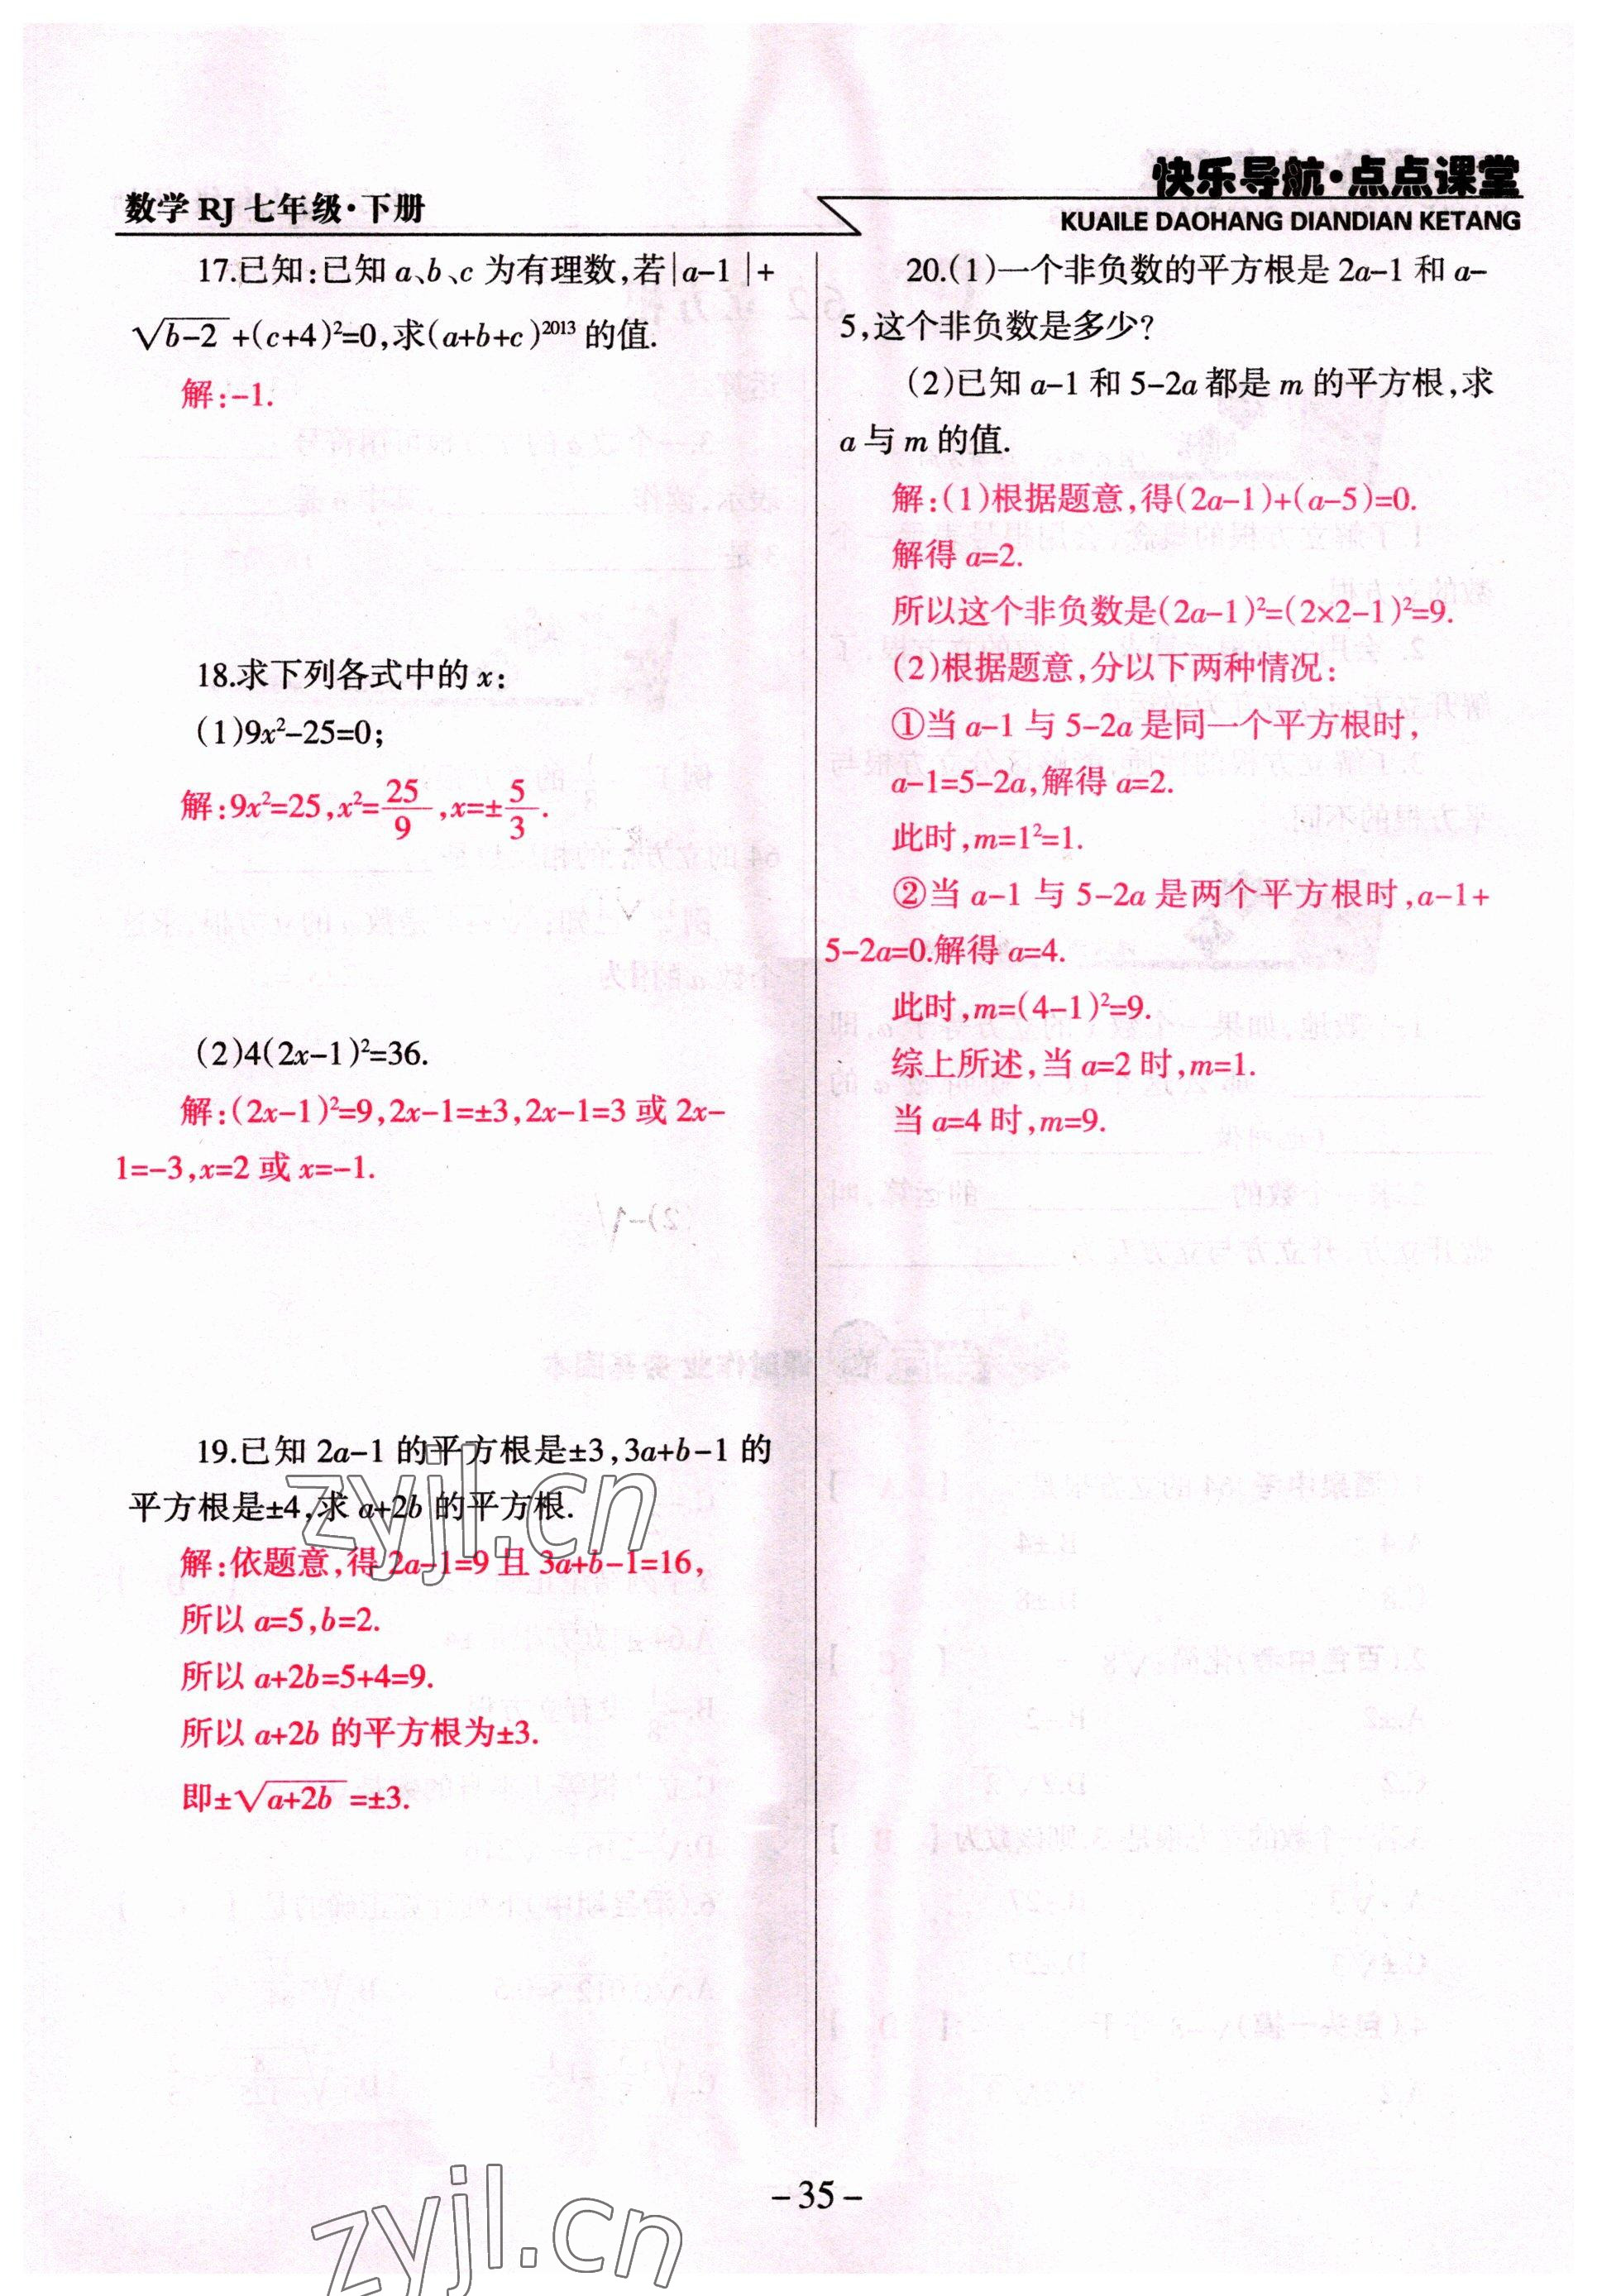 数学 RJ 七年级·下册
快乐导航·点点课堂
KUAILE DAOHANG DIANDIAN KETANG
17.已知:已知 a、b、c 为有理数,若|a-1|+
√(b-2)+(c+4)²=0,求(a+b+c)²⁰¹³ 的值.
解:-1.
18.求下列各式中的 x:
(1)9x²-25=0;
解:9x²=25,x²=25/9,x=±5/3.
(2)4(2x-1)²=36.
解:(2x-1)²=9,2x-1=±3,2x-1=3 或 2x-
1=-3,x=2 或 x=-1.
19.已知 2a-1 的平方根是±3,3a+b-1 的
平方根是±4,求 a+2b 的平方根.
解:依题意,得 2a-1=9 且 3a+b-1=16,
所以 a=5,b=2.
所以 a+2b=5+4=9.
所以 a+2b 的平方根为±3.
即±√(a+2b)=±3.
20.(1)一个非负数的平方根是 2a-1 和 a-
5,这个非负数是多少?
(2)已知 a-1 和 5-2a 都是 m 的平方根,求
a 与 m 的值.
解:(1)根据题意,得(2a-1)+(a-5)=0.
解得 a=2.
所以这个非负数是(2a-1)²=(2×2-1)²=9.
(2)根据题意,分以下两种情况:
①当 a-1 与 5-2a 是同一个平方根时,
a-1=5-2a,解得 a=2.
此时,m=1²=1.
②当 a-1 与 5-2a 是两个平方根时,a-1+
5-2a=0.解得 a=4.
此时,m=(4-1)²=9.
综上所述,当 a=2 时,m=1.
当 a=4 时,m=9.
zyjl.cn
-35-
zyjl.cn